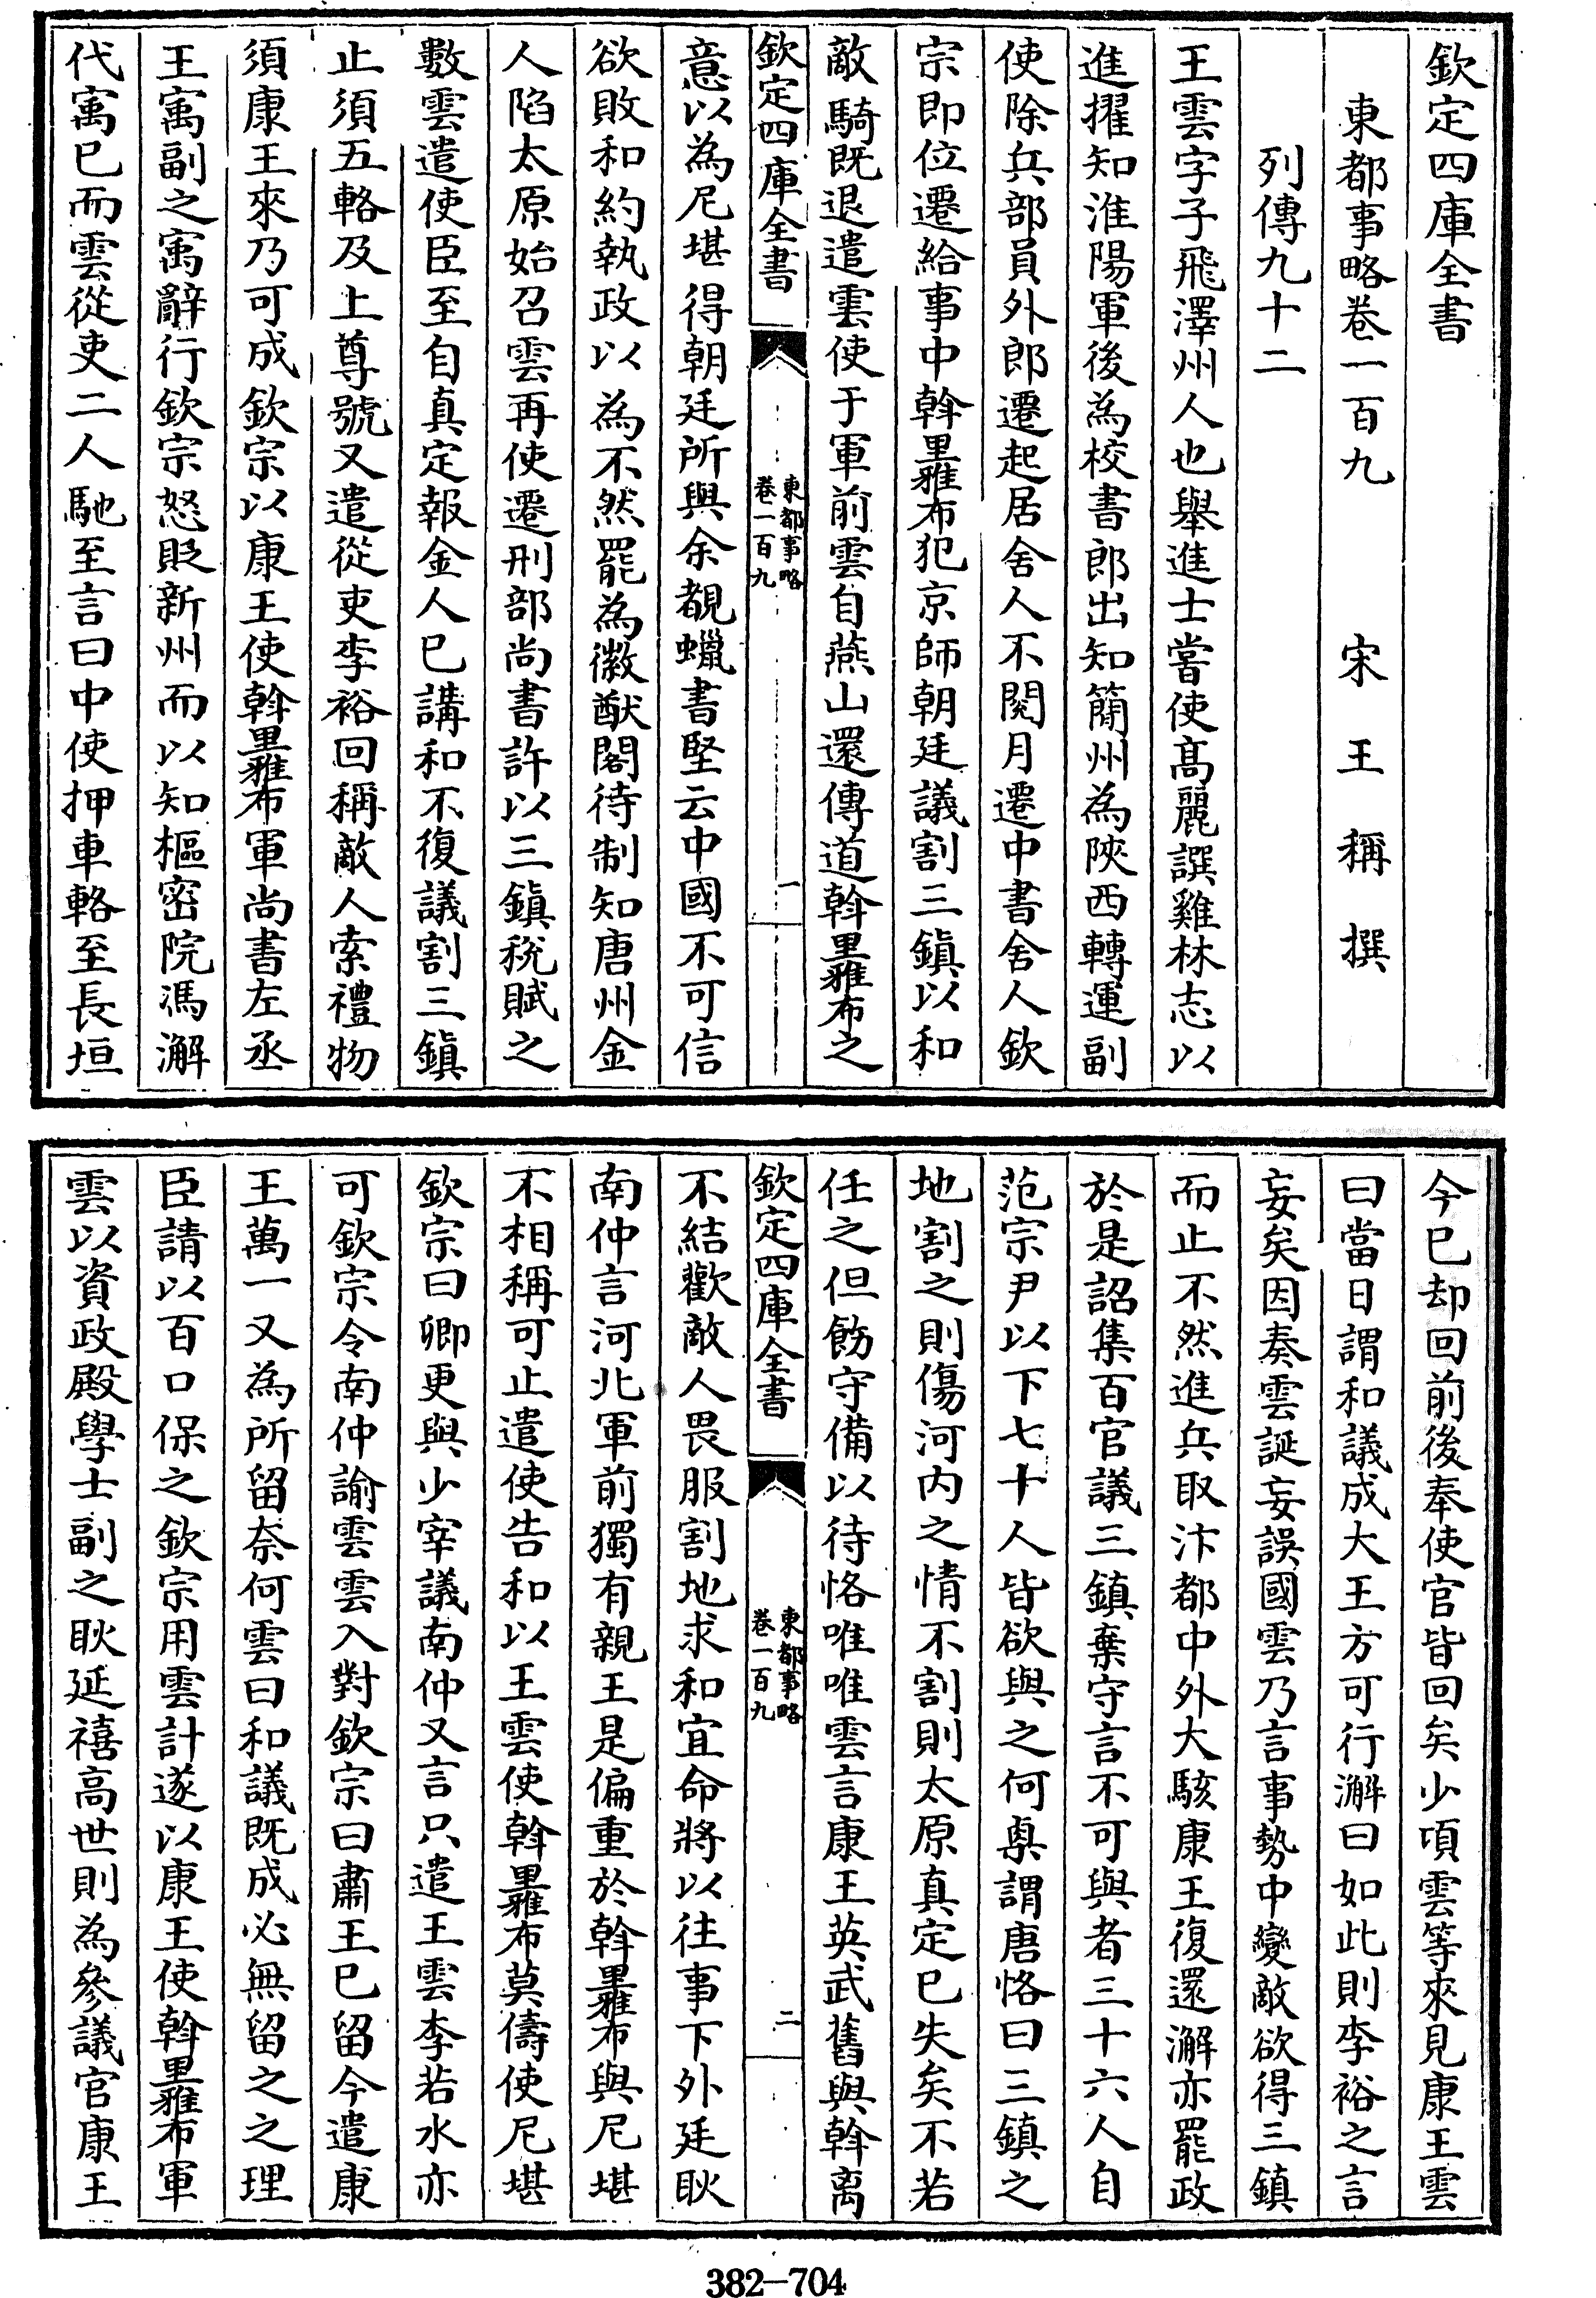 欽定四庫全書
東都事略卷一百九
宋王稱撰
列傳九十二
王雲字子飛澤州人也舉進士嘗使髙麗譔雞林志以
進擢知淮陽軍後為校書郎出知簡州為陝西轉運副
使除兵部員外郎遷起居舍人不閱月遷中書舍人欽
宗即位遷給事中斡里雅布犯京師朝廷議割三鎮以和
敵騎既退遣雲使于軍前雲自燕山還傳道斡里雅布之
欽定四庫全書
東都事略
卷一百九
一
意以為尼堪得朝廷所與余覩蠟書堅云中國不可信
欲敗和約執政以為不然罷為徽猷閣待制知唐州金
人陷太原始召雲再使遷刑部尚書許以三鎮稅賦之
數雲遣使臣至自真定報金人已講和不復議割三鎮
止須五輅及上尊號又遣從吏李裕回稱敵人索禮物
須康王來乃可成欽宗以康王使斡里雅布軍尚書左丞
王寓副之寓辭行欽宗怒貶新州而以知樞密院馮澥
代寓已而雲從吏二人馳至言曰中使押車輅至長垣
今已却回前後奉使官皆回矣少項雲等來見康王雲
曰當日謂和議成大王方可行澥曰如此則李裕之言
妄矣因奏雲誕妄誤國雲乃言事勢中變敵欲得三鎮
而止不然進兵取汴都中外大駭康王復還澥亦罷政
於是詔集百官議三鎮棄守言不可與者三十六人自
范宗尹以下七十人皆欲與之何㮚謂唐恪曰三鎮之
地割之則傷河内之情不割則太原真定已失矣不若
任之但飭守備以待恪唯唯雲言康王英武舊與斡离
欽定四庫全書
東都事略
卷一百九
二
不結歡敵人畏服割地求和宜命將以往事下外廷耿
南仲言河北軍前獨有親王是偏重於斡里雅布與尼堪
不相稱可止遣使告和以王雲使斡里雅布莫儔使尼堪
欽宗曰卿更與少宰議南仲又言只遣王雲李若水亦
可欽宗令南仲諭雲雲入對欽宗曰肅王已留今遣康
王萬一又為所留奈何雲曰和議既成必無留之之理
臣請以百口保之欽宗用雲計遂以康王使斡里雅布軍
雲以資政殿學士副之耿延禧高世則為參議官康王
382—704